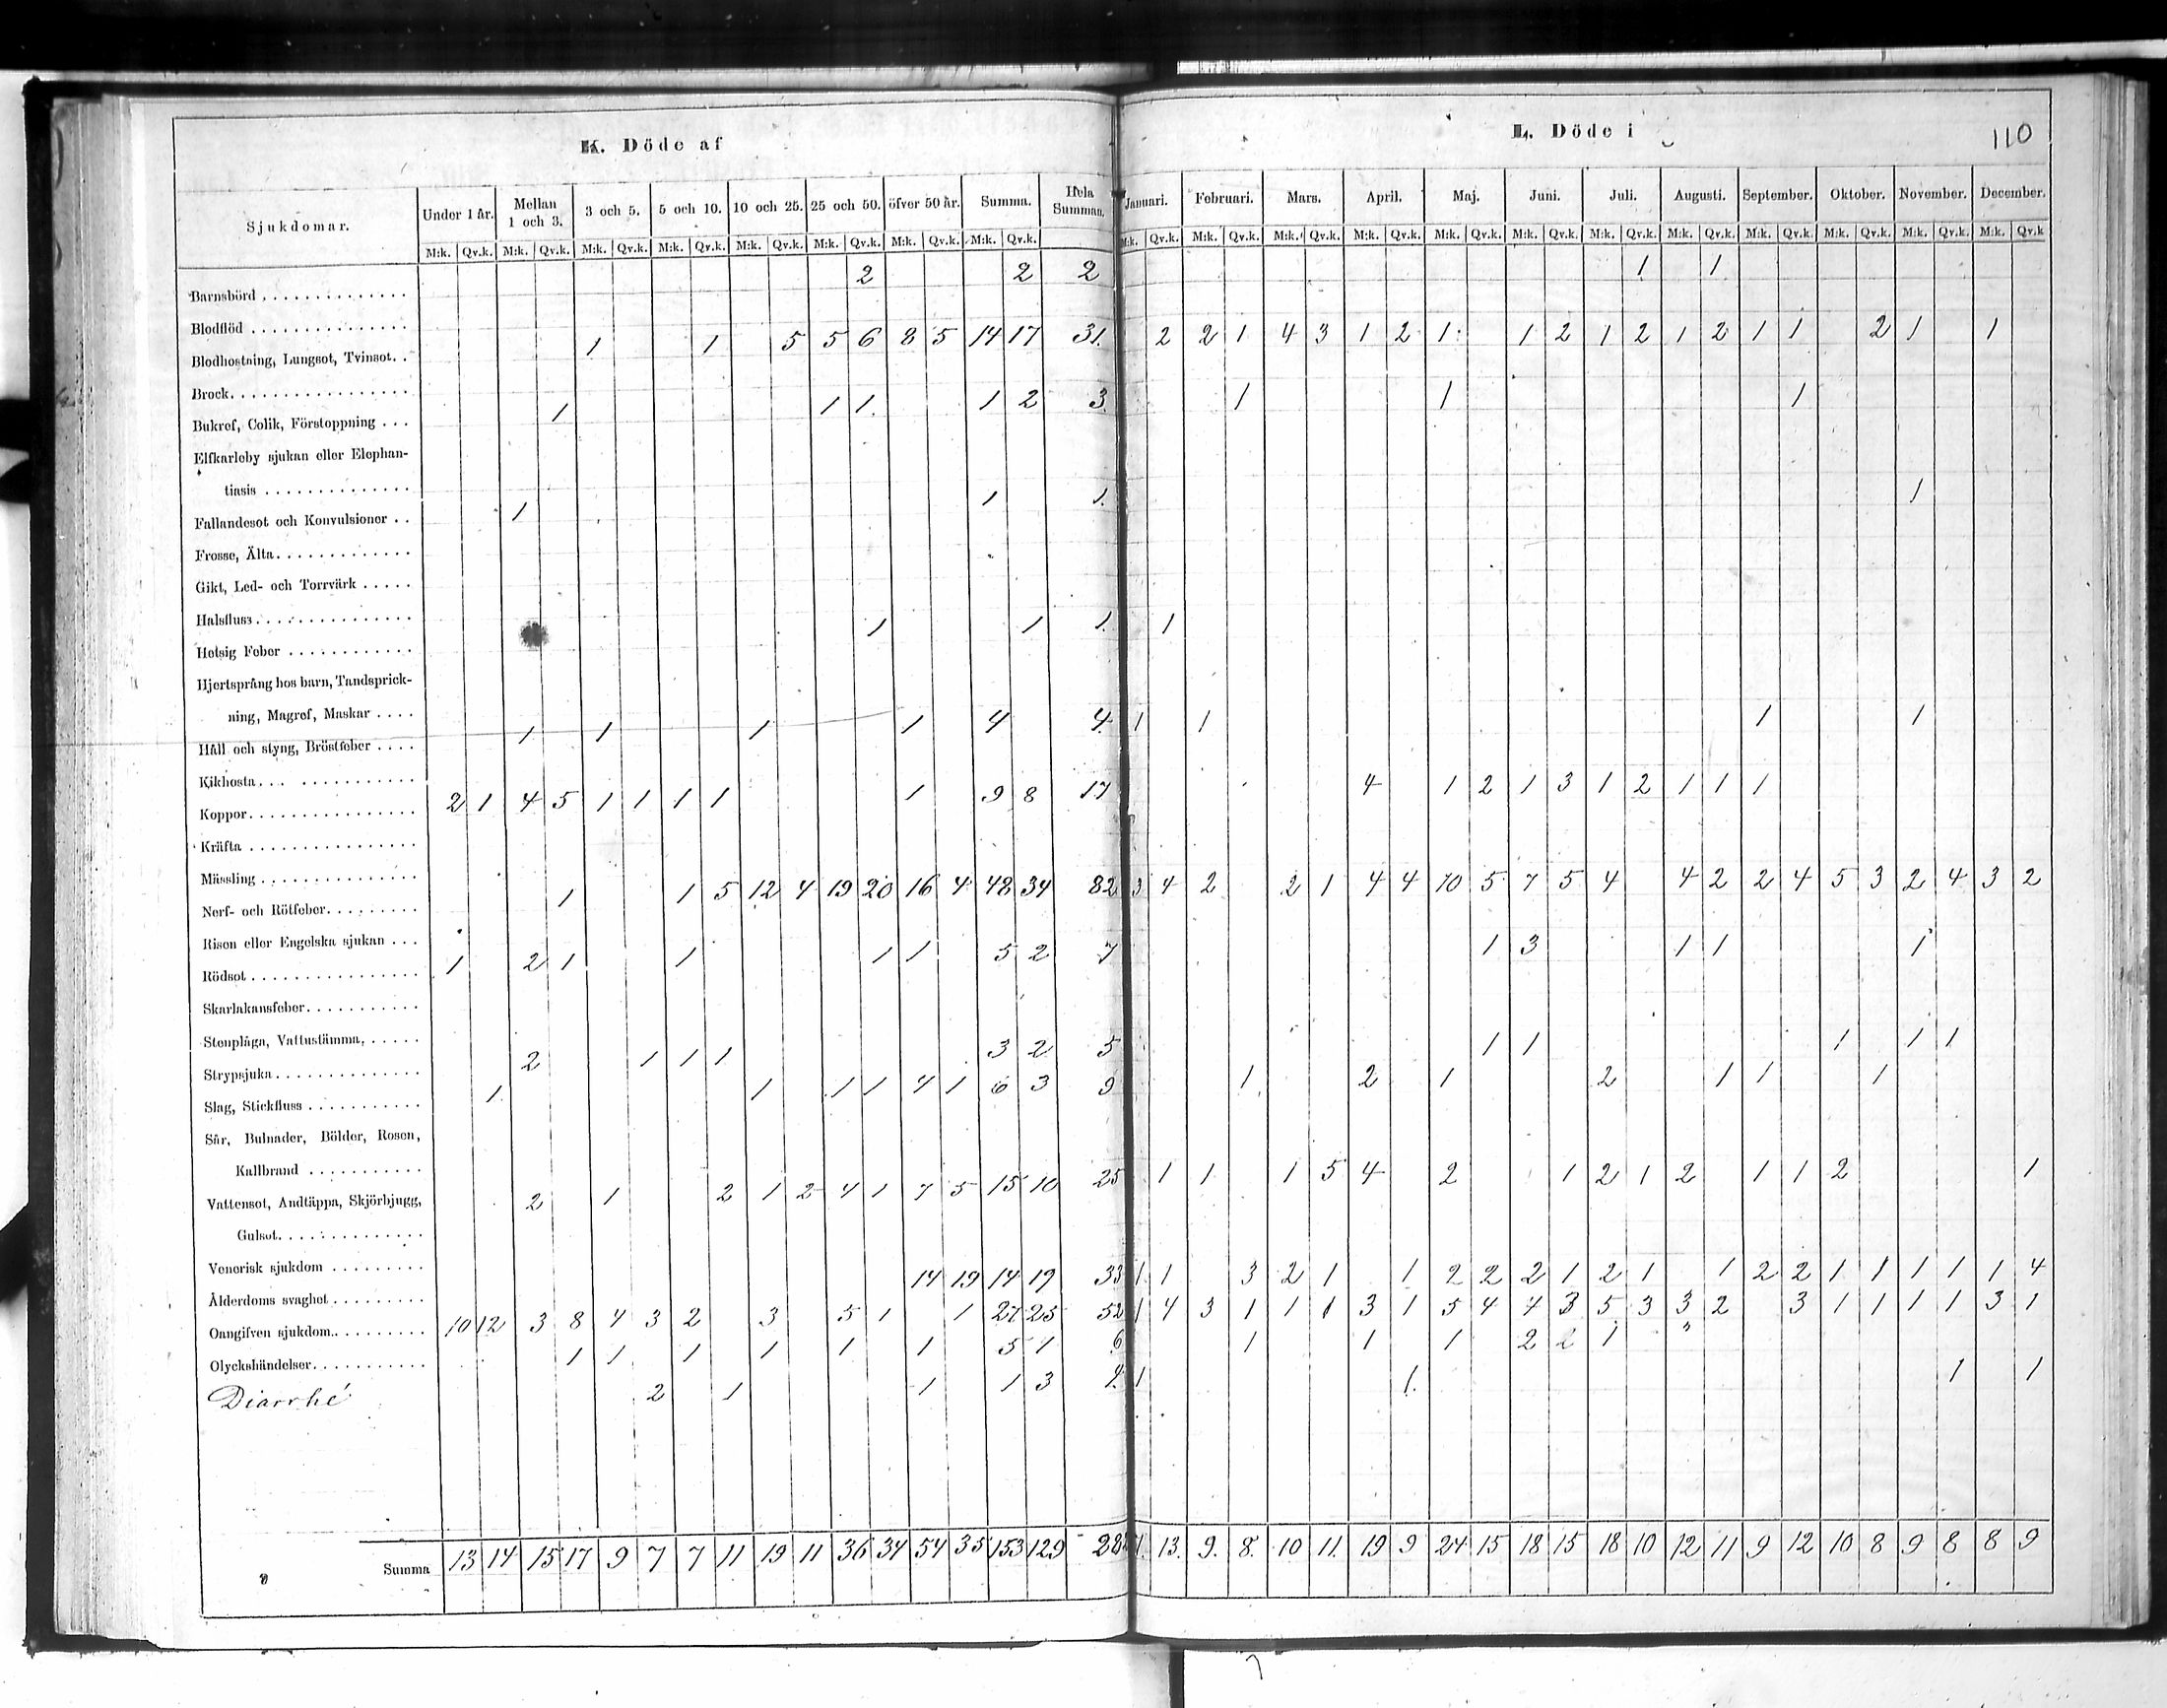 K. Döde af
L. Döde i
110
Sjukdomar. Under 1 år. Mellan 1 och 3. 3 och 5. 5 och 10. 10 och 25. 25 och 50. öfver 50 år. Summa. Hela Summan. Januari. Februari. Mars. April. Maj. Juni. Juli. Augusti. September. Oktober. November. December.
M:k. Qv.k. M:k. Qv.k. M:k. Qv.k. M:k. Qv.k. M:k. Qv.k. M:k. Qv.k. M:k. Qv.k. M:k. Qv.k. M:k. Qv.k. M:k. Qv.k. M:k. Qv.k. M:k. Qv.k. M:k. Qv.k. M:k. Qv.k. M:k. Qv.k. M:k. Qv.k. M:k. Qv.k. M:k. Qv.k. M:k. Qv.k. M:k. Qv.k
Barnsbörd 2 2 2 1 1
Blodflöd
Blodhostning, Lungsot, Tvinsot. 1 1 5 5 6 8 5 14 17 31 2 2 1 4 3 1 2 1 1 2 1 2 1 2 1 1 2 1 1
Brock
Bukref, Colik, Förstoppning 1 1 1 1 2 3 1 1 1
Elfkarleby sjukan eller Elephan-
tiasis
Fallandesot och Konvulsioner 1 1 1 1
Frosse, Älta
Gikt, Led- och Torrvärk
Halsfluss
Hetsig Feber 1 1 1 1
Hjertsprång hos barn, Tandsprick-
ning, Magref, Maskar
Håll och styng, Bröstfeber 1 1 1 1 4 4 1 1 1 1
Kikhosta
Koppor 2 1 4 5 1 1 1 1 1 9 8 17 4 1 2 1 3 1 2 1 1 1
Kräfta
Mässling
Nerf- och Rötfeber 1 1 5 12 4 19 20 16 4 48 34 82 3 4 2 2 1 4 4 10 5 7 5 4 4 2 2 4 5 3 2 4 3 2
Risen eller Engelska sjukan
Rödsot 1 2 1 1 1 1 5 2 7 1 3 1 1 1
Skarlakansfeber
Stenplåga, Vattustämma,
Strypsjuka 2 1 1 1 3 2 5 1 1 1 1 1
Slag, Stickfluss 1 1 1 1 4 1 6 3 9 1 2 1 2 1 1 1
Sår, Bulnader, Bölder, Rosen,
Kallbrand
Vattensot, Andtäppa, Skjörbjugg, 2 1 2 1 2 4 1 7 5 15 10 25 1 1 1 5 4 2 1 2 1 2 1 1 2 1
Gulsot
Venerisk sjukdom
Ålderdoms svaghet 14 19 14 19 33 1 1 3 2 1 1 2 2 2 1 2 1 1 2 2 1 1 1 1 1 4
Oangifven sjukdom 10 12 3 8 4 3 2 3 5 1 1 27 25 52 1 4 3 1 1 1 3 1 5 4 4 3 5 3 3 2 3 1 1 1 1 3 1
Olyckshändelser 1 1 1 1 1 1 5 1 6 1 1 1 2 1
Diarrhé 2 1 1 1 3 1 1 1 1
Summa 13 14 15 17 9 7 7 11 19 11 36 34 54 35 153 129 13 9 8 10 11 19 9 24 15 18 15 18 10 12 11 9 12 10 8 9 8 8 9